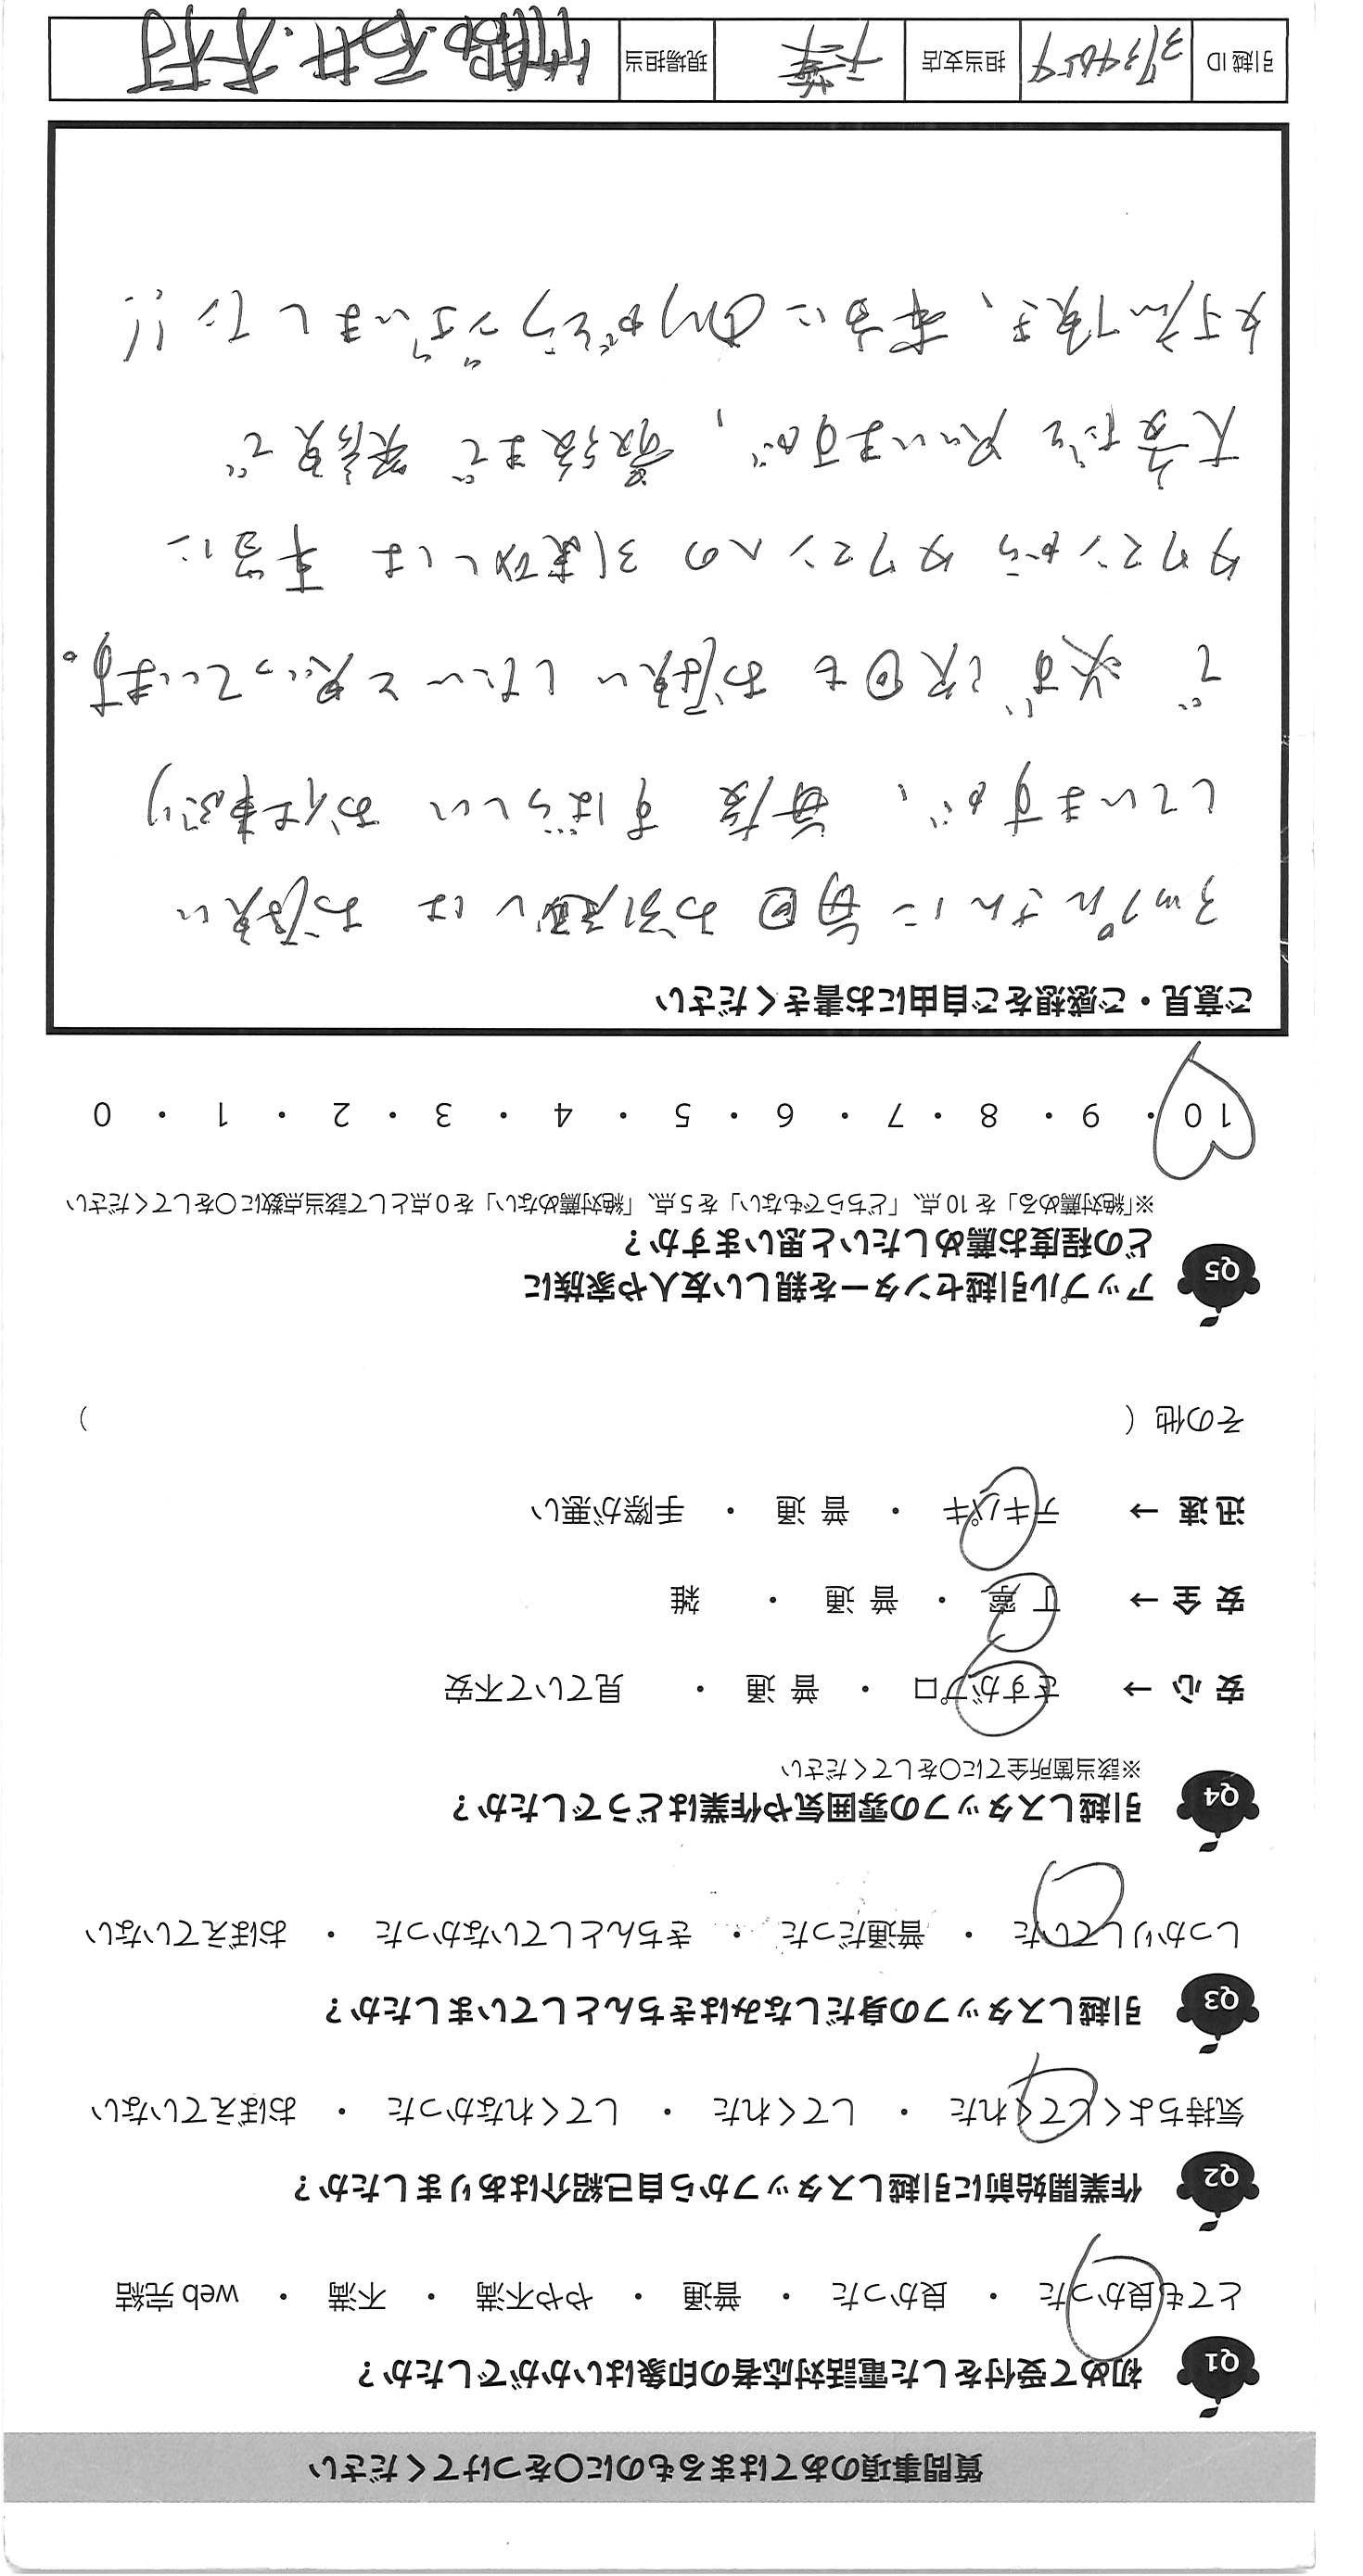 質問事項のあてはまるものに〇をつけてください
Q1 初めて受付をした電話対応者の印象はいかがでしたか？
とても良かった ・ 良かった ・ 普通 ・ やや不満 ・ 不満 ・ web 完結
Q2 作業開始前に引越しスタッフから自己紹介はありましたか？
気持ちよくしてくれた ・ してくれた ・ してくれなかった ・ おぼえていない
Q3 引越しスタッフの身だしなみはきちんとしていましたか？
しっかりしていた ・ 普通だった ・ きちんとしていなかった ・ おぼえていない
Q4 引越しスタッフの雰囲気や作業はどうでしたか？
※該当箇所全てに〇をしてください
安 心 → さすがプロ ・ 普 通 ・ 見ていて不安
安 全 → 丁 寧 ・ 普 通 ・ 雑
迅 速 → テキパキ ・ 普 通 ・ 手際が悪い
その他（ ）
Q5 アップル引越センターを親しい友人や家族に
どの程度お薦めしたいと思いますか？
※「絶対薦める」を 10 点、「どちらでもない」を 5 点、「絶対薦めない」を 0 点として該当点数に〇をしてください
10 ・ 9 ・ 8 ・ 7 ・ 6 ・ 5 ・ 4 ・ 3 ・ 2 ・ 1 ・ 0
ご意見・ご感想をご自由にお書きください
アップルさんに毎回お引越しはお願い
していますが、毎度すばらしいお仕事ぶり
で必ず次回もお願いしたいと思っています。
タワマンからタワマンへの引越しは本当に
大変だと思いますが、最後まで笑顔で
対応頂き、本当にありがとうございました!!
引越 ID
担当支店 千葉
現場担当 石井